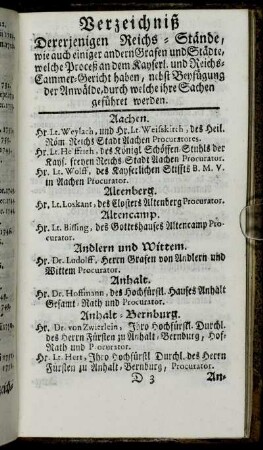 Verzeichniß
Dererjenigen Reichs-Stände,
wie auch einiger andern Grafen und Städte,
welche Proceß an dem Kayserl. und Reichs-
Cammer-Gericht haben, nebst Beyfügung
der Anwälde, durch welche ihre Sachen
geführet werden.
Aachen.
Hr. Lt. Weylach, und Hr. Lt. Weiskirch, des Heil.
Röm Reichs Stadt Aachen Procuratores.
Hr. Lt. Helffrich, des Königl Schöffen-Stuhls der
Kays. freyen Reichs-Stadt Aachen Procurator.
Hr. Lt. Wolff, des Kayserlichen Stiffts B. M. V.
in Aachen Procurator.
Altenberg.
Hr. Lt. Loskant, des Closters Altenberg Procurator.
Altencamp.
Hr. Lt. Bissing, des Gotteshauses Altencamp Pro-
curator.
Andlern und Wittem.
Hr. Dr. Ludolff, Herrn Grafen von Andlern und
Wittem Procurator.
Anhalt.
Hr. Dr. Hoffmann, des Hochfürstl. Hauses Anhalt
Gesamt-Rath und Procurator.
Anhalt-Bernburg.
Hr. Dr. von Zwierlein, Ihro Hochfürstl. Durchl.
des Herrn Fürsten zu Anhalt-Bernburg, Hof-
Rath und Procurator.
Hr. Lt. Hert, Ihro Hochfürstl Durchl. des Herrn
Fürsten zu Anhalt-Bernburg, Procurator.
D 3 An-